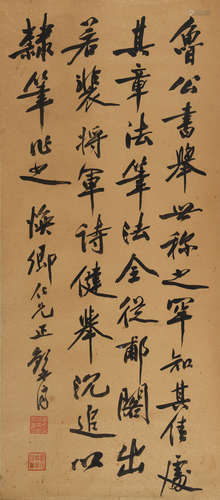 魯公書舉世称之罕知其佳處
其章法筆法全從郙閣出
若裴將軍诗健舉沉追以
隸筆作之 煥卿仁兄正